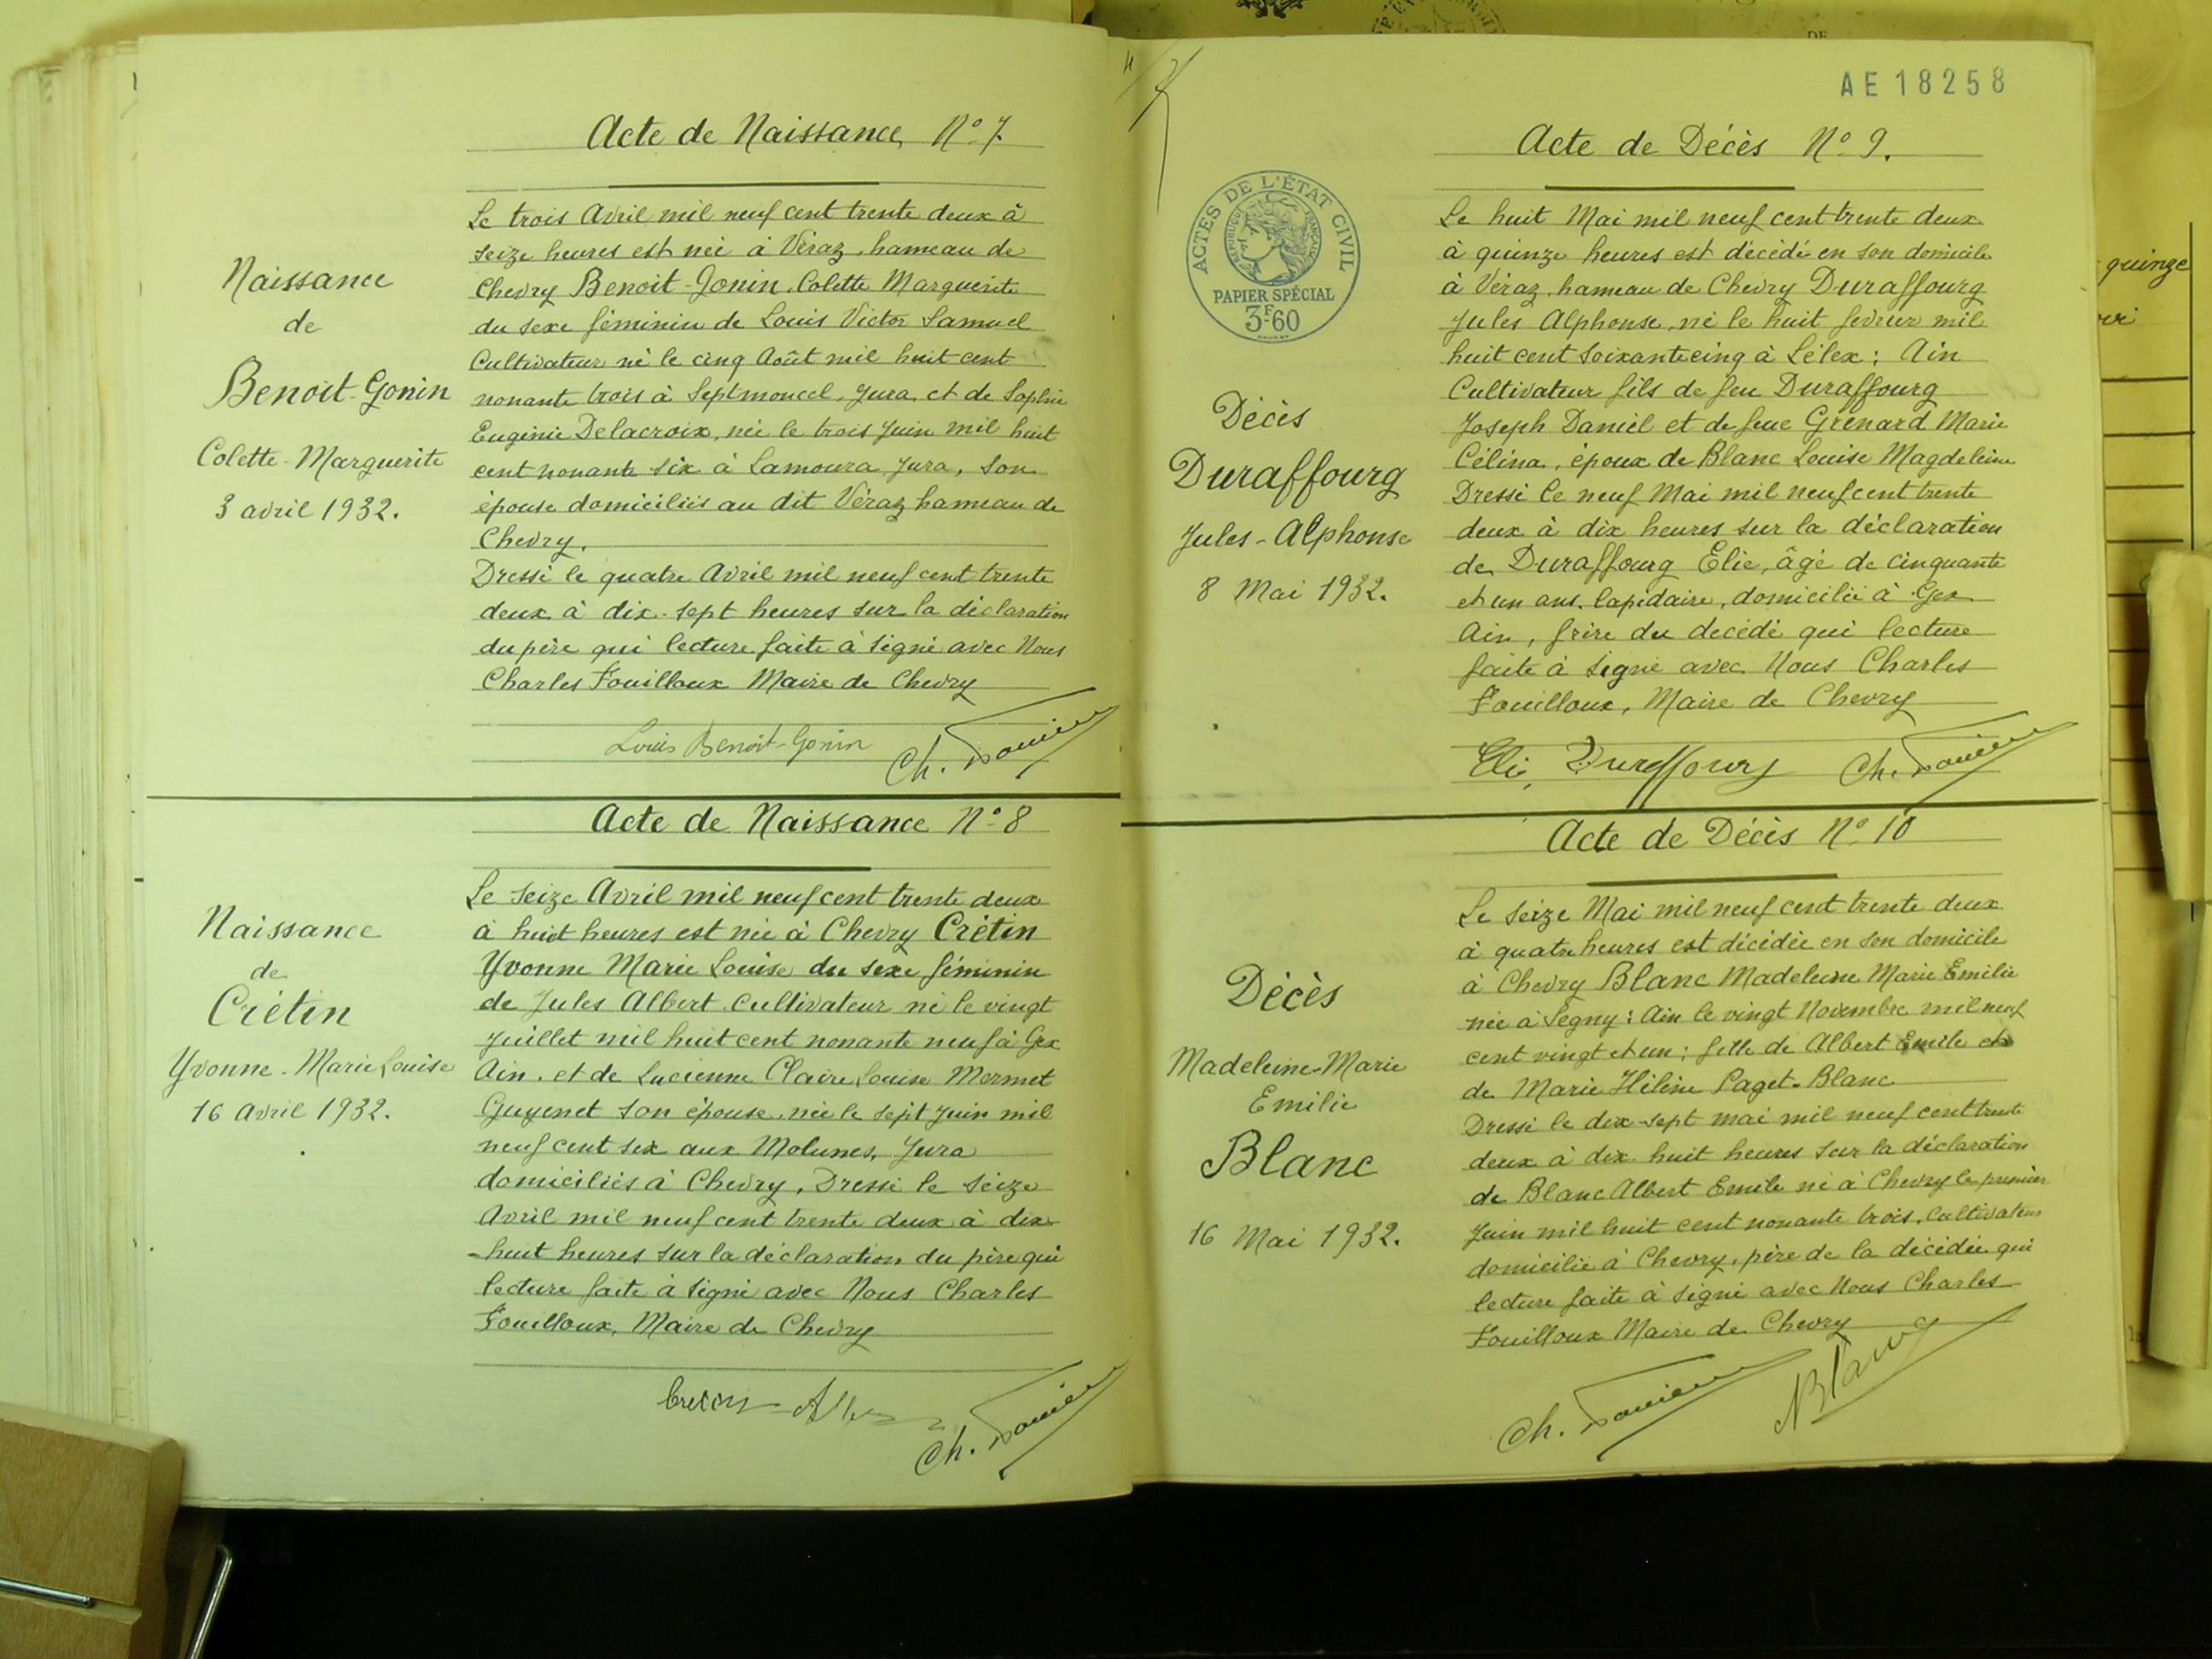 Acte de Naissance N° 7
Naissance
de
Benoit-Gonin
Colette-Marguerite
3 avril 1932.
Le trois Avril mil neuf cent trente deux à
seize heures est née à Véraz, hameau de
Chevry Benoit-Gonin, Colette Marguerite
du sexe féminin de Louis Victor Samuel
Cultivateur né le cinq Août mil huit cent
nonante trois à Septmoncel, Jura et de Sophie
Eugénie Delacroix, née le trois Juin mil huit
cent nonante six à Lamoura, Jura, son
épouse domiciliés au dit Véraz hameau de
Chevry.
Dressé le quatre Avril mil neuf cent trente
deux à dix-sept heures sur la déclaration
du père qui lecture faite à signé avec Nous
Charles Fouilloux Maire de Chevry
Louis Benoit-Gonin
Acte de Naissance N° 8
Naissance
de
Crétin
Yvonne-Marie Louise
16 avril 1932.
Le seize Avril mil neuf cent trente deux
à huit heures est née à Chevry Crétin
Yvonne Marie Louise du sexe féminin
de Jules Albert Cultivateur né le vingt
Juillet mil huit cent nonante neuf à Gex
Ain, et de Lucienne Claire Louise Mermet
Guyenet son épouse, née le sept Juin mil
neuf cent six aux Molunes, Jura
domiciliés à Chevry, Dressé le seize
Avril mil neuf cent trente deux à dix
-huit heures sur la déclaration du père qui
lecture faite à signé avec Nous Charles
Fouilloux, Maire de Chevry
AE 18258
Acte de Décès N° 9.
ACTES DE L'ÉTAT CIVIL
RÉPUBLIQUE FRANÇAISE
PAPIER SPÉCIAL
3F60
Décès
Duraffourg
Jules-Alphonse
8 Mai 1932.
Le huit Mai mil neuf cent trente deux
à quinze heures est décédé en son domicile
à Véraz, hameau de Chevry Duraffourg
Jules Alphonse, né le huit fevrier mil
huit cent soixante cinq à Lélex; Ain
Cultivateur fils de feu Duraffourg
Joseph Daniel et de feue Grenard Marie
Célina, époux de Blanc Louise Magdeleine
Dressé le neuf Mai mil neuf cent trente
deux à dix heures sur la déclaration
de Duraffourg Elie, âgé de cinquante
et un ans, lapidaire, domicilié à Gex
Ain, frère du decédé qui lecture
faite à signé avec Nous Charles
Fouilloux, Maire de Chevry
Elie Duraffourg
Acte de Décès N° 10
Décès
Madeleine-Marie
Emilie
Blanc
16 Mai 1932.
Le seize Mai mil neuf cent trente deux
à quatre heures est décédée en son domicile
à Chevry Blanc Madeleine Marie Emilie
née à Segny: Ain le vingt Novembre mil neuf
cent vingt et un; fille de Albert Emile et
de Marie Hélène Paget-Blanc
Dressé le dix-sept mai mil neuf cent trente
deux à dix huit heures sur la déclaration
de Blanc Albert Emile né à Chevry le premier
Juin mil huit cent nonante trois, Cultivateur
domicilié à Chevry, père de la décédée qui
lecture faite à signé avec Nous Charles
Fouilloux Maire de Chevry
ABlanc
quinze